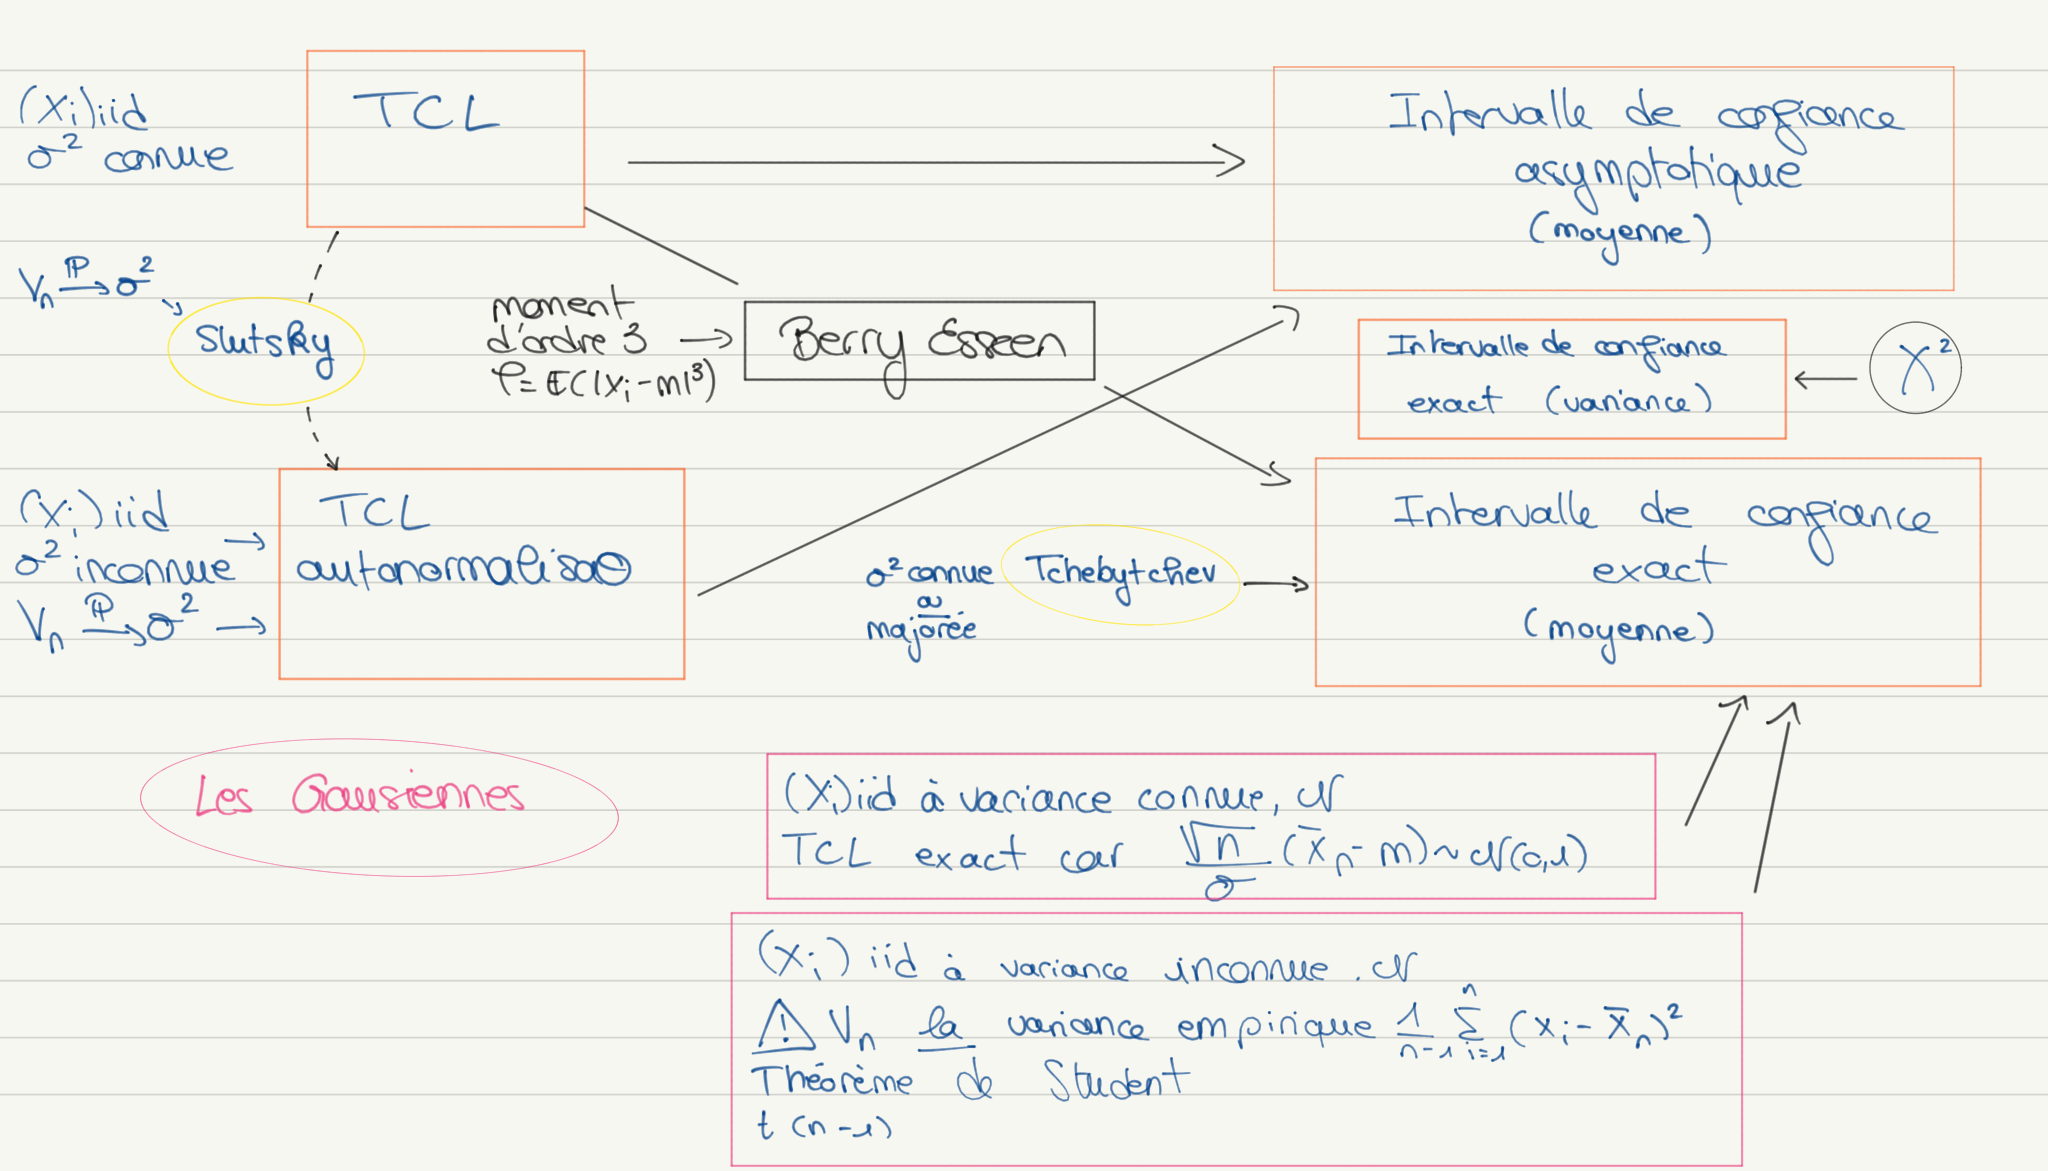 (Xi) iid
σ² connue
TCL
Intervalle de confiance
asymptotique
(moyenne)
Vn →ᴾ σ²
Slutsky
moment
d'ordre 3
ρ = E(|Xi - m|³)
Berry Esseen
Intervalle de confiance
exact (variance)
χ²
(Xi) iid
σ² inconnue
Vn →ᴾ σ²
TCL
autonormalisé
σ² connue
ou
majorée
Tchebytchev
Intervalle de confiance
exact
(moyenne)
Les Gausiennes
(Xi) iid à variance connue, N
TCL exact car √n/σ (X̄n - m) ~ N(0,1)
(Xi) iid à variance inconnue. N
⚠ Vn la variance empirique 1/(n-1) Σ_{i=1}^{n} (Xi - X̄n)²
Théorème de Student
t (n-1)